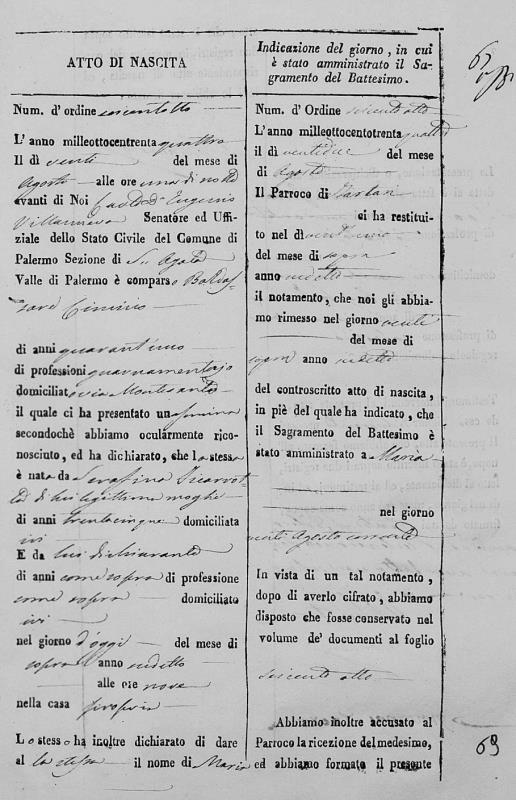 ATTO DI NASCITA
Num. d' ordine seicentotto
L' anno milleottocentotrenta quattro
Il dì venti del mese di
Agosto alle ore una di notte
avanti di Noi Cav. D. Eugenio
Villanueva Senatore ed Uffi-
ziale dello Stato Civile del Comune di
Palermo Sezione di S. Agata
Valle di Palermo è comparso Baldas-
sare Ciminio
di anni quarantuno
di professioni
domiciliato via Montesanto
il quale ci ha presentato una femina
secondochè abbiamo ocularmente rico-
nosciuto, ed ha dichiarato, che la stessa
è nata da Serafina
di lui legittima moglie
di anni trentacinque domiciliata
ivi
E da lui dichiarante
di anni come sopra di professione
come sopra domiciliato
ivi
nel giorno d'oggi del mese di
sopra anno sudetto
alle ore nove
nella casa propria
Lo stesso ha inoltre dichiarato di dare
al la stessa il nome di Maria
Indicazione del giorno, in cui
è stato amministrato il Sa-
gramento del Battesimo.
Num. d' Ordine seicento otto
L' anno milleottocentotrenta quattro
il dì ventidue del mese
di Agosto
Il Parroco di
ci ha restitui-
to nel dì ventuno
del mese di sopra
anno sudetto
il notamento, che noi gli abbia-
mo rimesso nel giorno venti
del mese di
sopra anno sudetto
del controscritto atto di nascita,
in piè del quale ha indicato, che
il Sagramento del Battesimo è
stato amministrato a Maria
nel giorno
venti Agosto corrente
In vista di un tal notamento,
dopo di averlo cifrato, abbiamo
disposto che fosse conservato nel
volume de' documenti al foglio
seicento otto
Abbiamo inoltre accusato al
Parroco la ricezione del medesimo,
ed abbiamo formato il presente
69